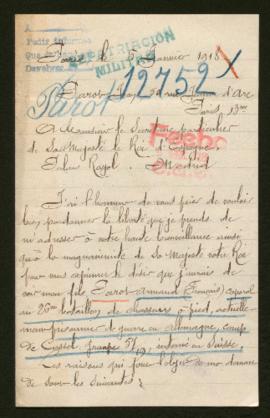 Paris le 5 Janvier 1918
A
Pedir informe
Que
Devolver
REPATRIACIÓN
MILITAR
12752
Parot
Parot rue d'Arc
Paris 13me
A Monsieur le Secrétaire particulier
de Sa Majesté le Roi d'Espagne
Palais Royal. Madrid
Fecha
J'ai l'honneur de vous prier de vouloir
bien pardonner la liberté que je prends de
m'adresser à votre haute bienveillance ainsi
qu'à la magnanimité de Sa Majesté votre Roi
pour vous exprimer le désir que j'aurais de
voir mon fils Parot Armand (Français) caporal
au 26me bataillon de chasseurs à pied, actuelle-
ment prisonnier de guerre en Allemagne, camp
de Cassel, interné en Suisse.
Les raisons qui font l'objet de ma demande
de sont les suivantes: